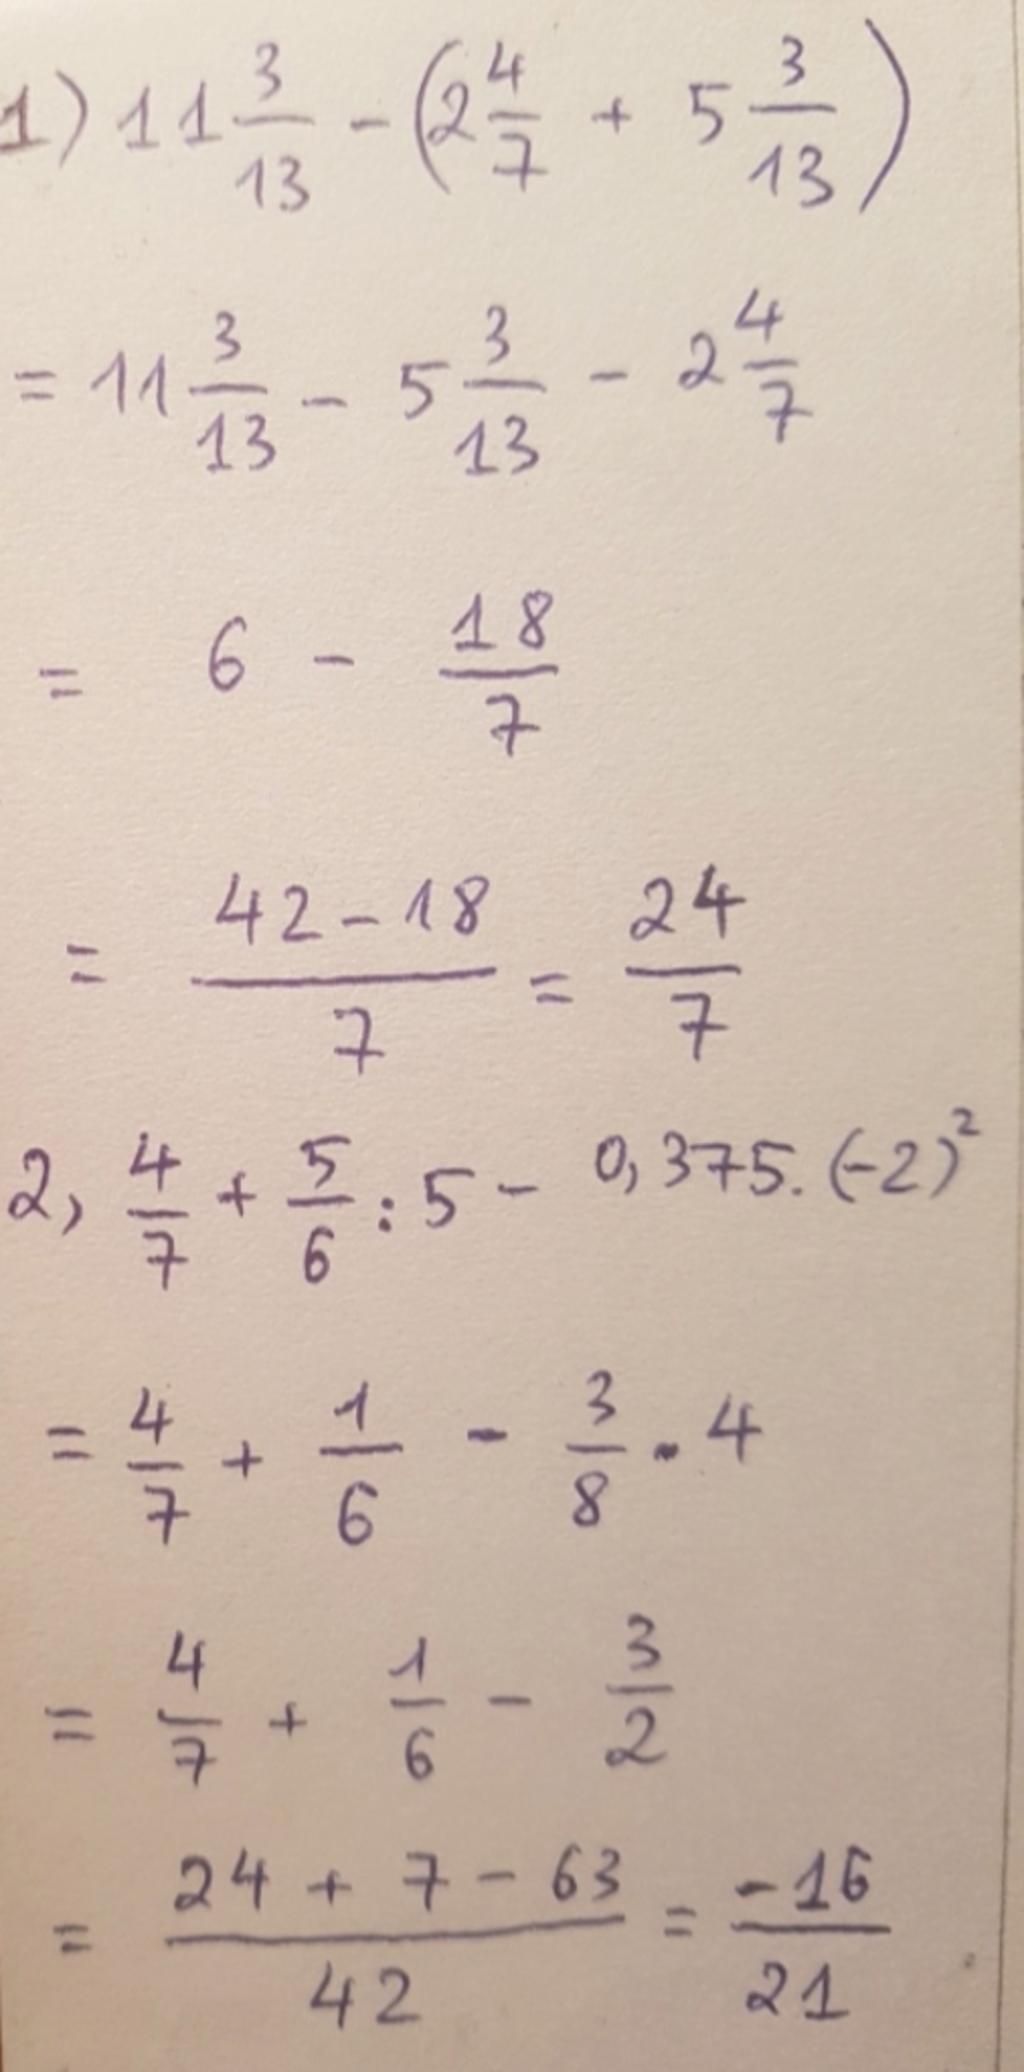 1) 11 3/13 - (2 4/7 + 5 3/13)
= 11 3/13 - 5 3/13 - 2 4/7
= 6 - 18/7
= (42 - 18)/7 = 24/7
2, 4/7 + 5/6 : 5 - 0,375. (-2)²
= 4/7 + 1/6 - 3/8 . 4
= 4/7 + 1/6 - 3/2
= (24 + 7 - 63)/42 = -16/21